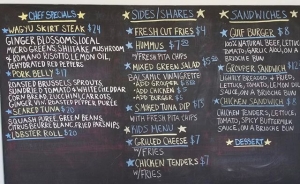 CHEF SPECIALS
WAGYU SKIRT STEAK $24
GINGER BLOSSOMS, LOCAL
MICRO GREENS, SHIITAKE MUSHROOM
& ROMANO RISOTTO, LEMON OIL,
DEHYDRATED RED PEPPERS
PORK BELLY $17
ROASTED BRUSSELS SPROUTS,
SUNDRIED TOMATO & WHITE CHEDDAR
CORN BREAD, ZUCCHINI, CARROTS,
GINGER VIN, ROASTED PEPPER PURÉE
SEARED TUNA $20
SQUASH PURÉE, GREEN BEANS,
CITRUS BEURRE BLANC, FRIED PARSNIPS
LOBSTER ROLL $20
SIDES/SHARES
FRESH CUT FRIES $4
HUMMUS $7.50
W/ FRESH PITA CHIPS
MIXED GREEN SALAD
BALSAMIC VINAIGRETTE
ADD CHICKEN
ADD BURGER
SMOKED TUNA DIP $15
WITH FRESH PITA CHIPS
KIDS MENU
GRILLED CHEESE $7
W/FRIES
CHICKEN TENDERS $7
W/FRIES
SANDWICHES
BURGER $8
100% NATURAL BEEF, LETTUCE,
ON A
BRIOCHE BUN
GROUPER SANDWICH $12
LIGHTLY BREADED & FRIED,
LETTUCE, TOMATO, LEMON
ON A BRIOCHE BUN
CHICKEN SANDWICH $8
CHICKEN, LETTUCE,
TOMATO, SPICY BUTTERMILK
SAUCE, ON A BRIOCHE BUN
DESSERT